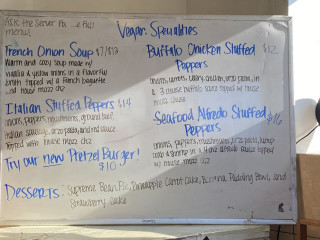 Ask the Server for a full
menu!
Vegan Specialties
French Onion Soup $7/$12
Warm and cozy soup made w/
vidalia & yellow onions in a flavorful
broth topped w/ a French baguette
and house mozz chz
Italian Stuffed Peppers $14
onions, peppers, mushrooms, ground beef,
Italian sausage, orzo pasta, and red sauce
topped with house mozz chz
Try our new Pretzel Burger!
$16
Buffalo Chicken Stuffed $12
Peppers
onions, carrots, celery, chicken, orzo pasta, in
a 3 cheese buffalo sauce topped w/ house
mozz cheese
Seafood Alfredo Stuffed $16
Peppers
onions, peppers, mushrooms, orzo pasta,
& shrimp in a alfredo sauce topped
w/ mozz chz
Desserts: Supreme Bean Pie, Pineapple Carrot Cake, Banana Pudding Bowl, and
Strawberry Cake